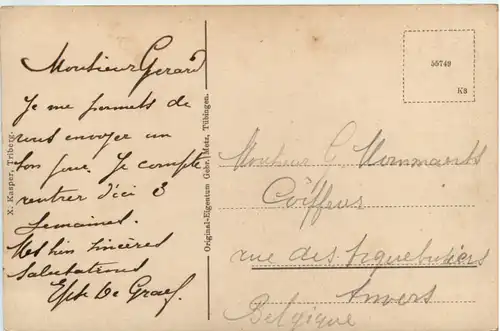 Monsieur Gerard
Je me permets de
vous envoyer un
bon jour. Je compte
rentrer d'ici 3
semaines.
Mes bien sincères
salutations
De Graef.
X. Kasper, Triberg.
Original-Eigentum Gebr. Metz, Tübingen.
55749
KS
Monsieur G Mommaerts
Coiffeur
rue des Arquebusiers
Anvers
Belgique